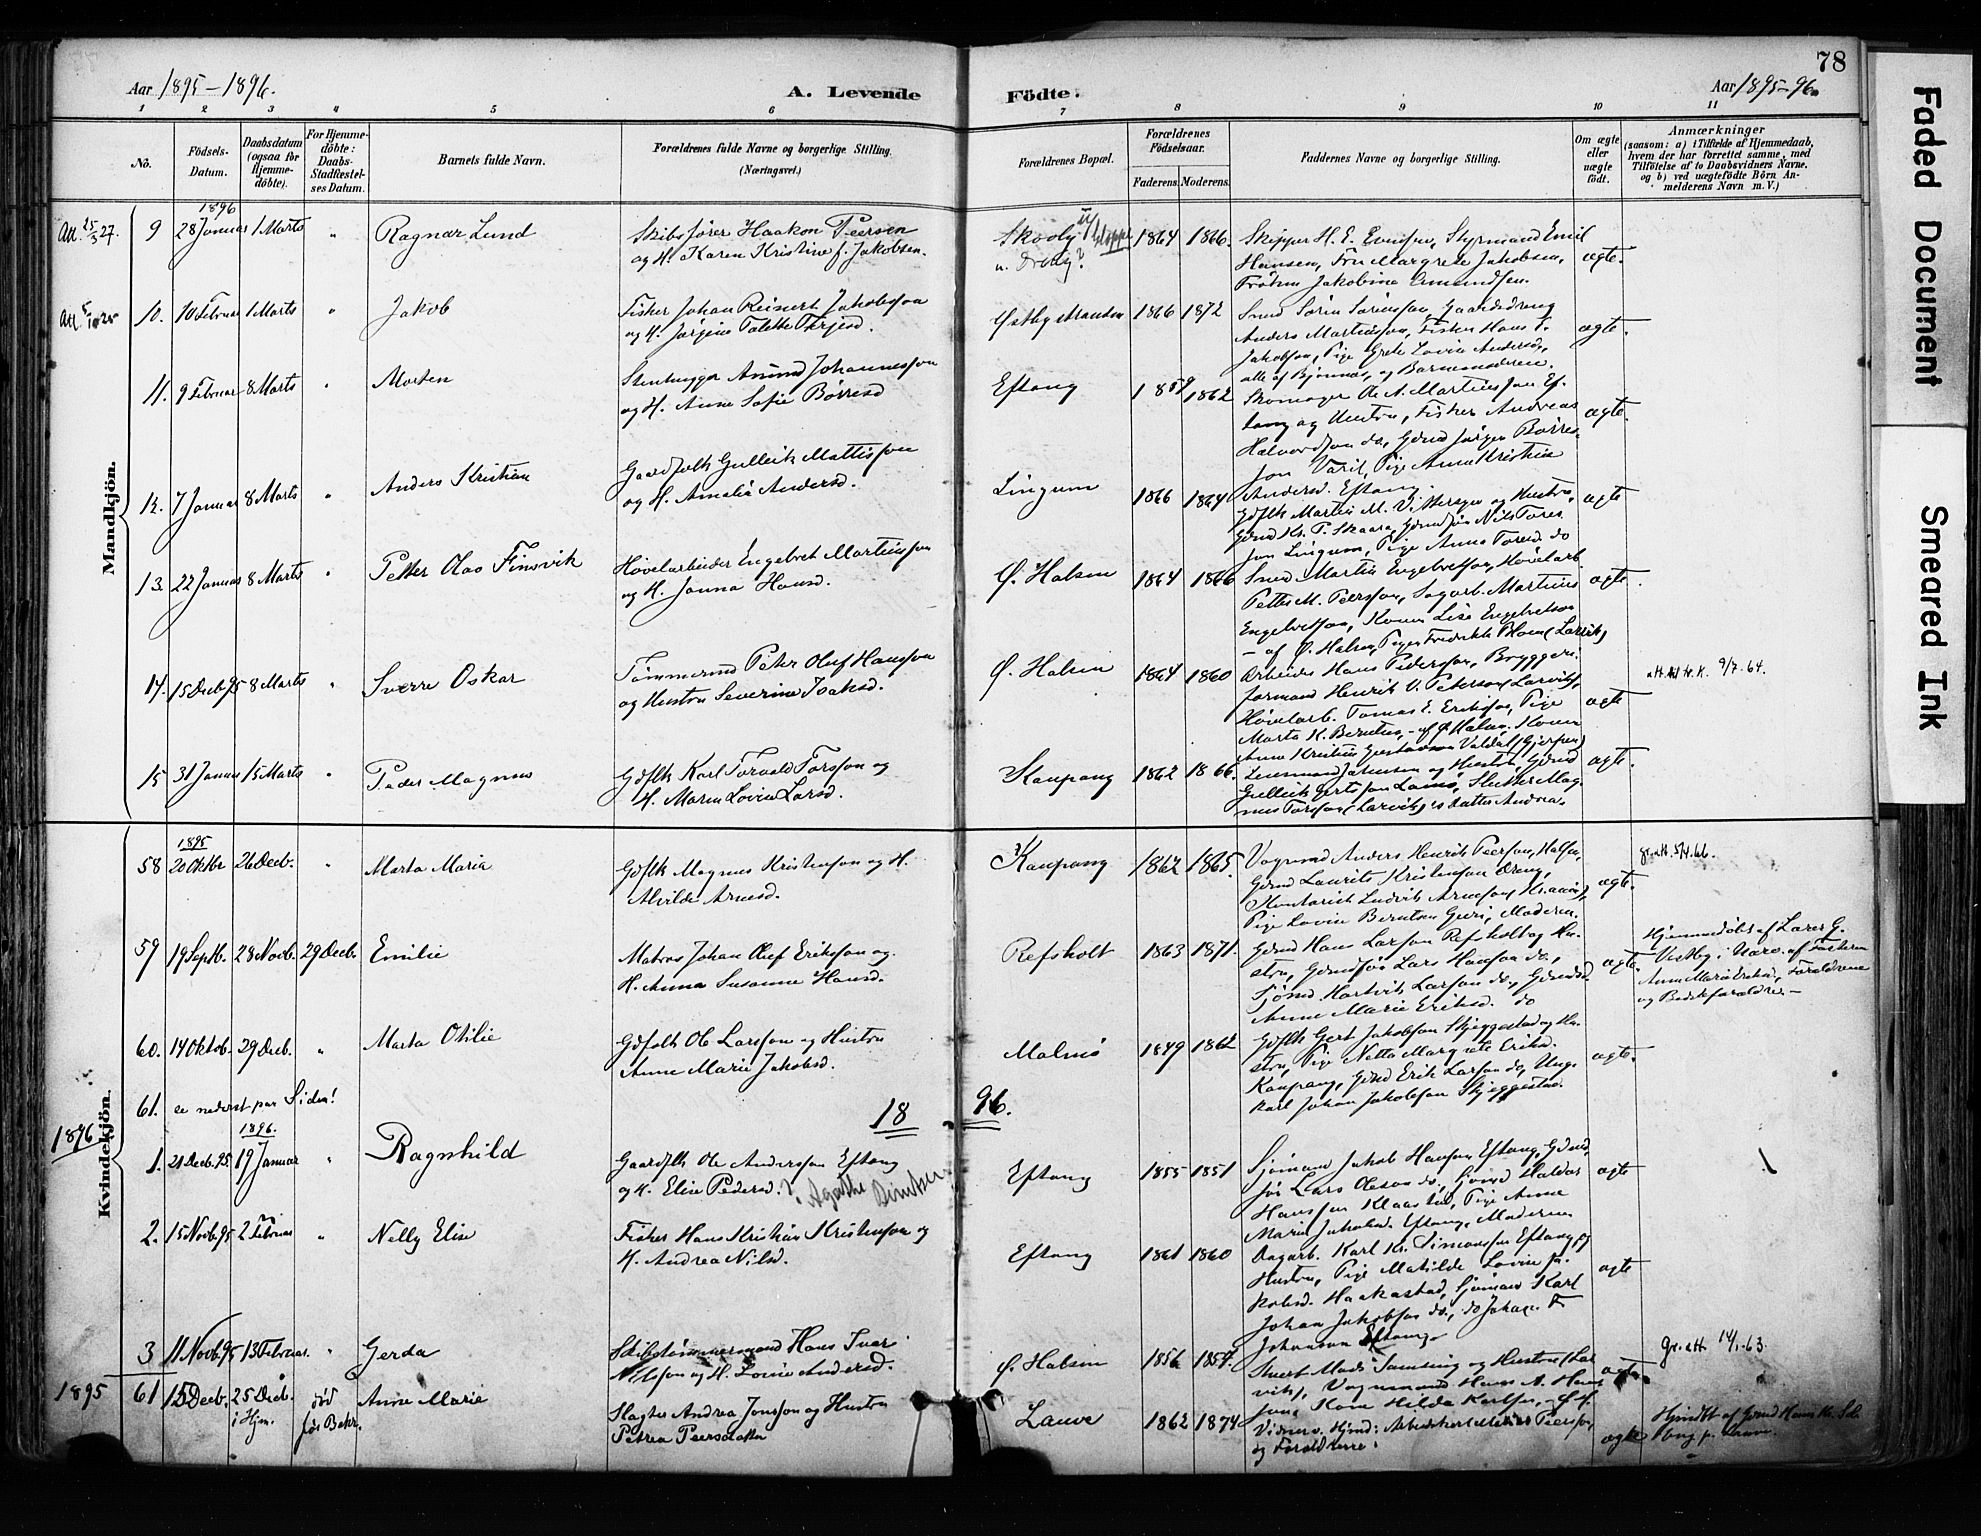 78
Aar 1895-1896.
A. Levende
Födte.
Aar 1895-96.
1 2 3 4 5 6 7 8 9 10 11
No.
Födsels-Datum.
Daabsdatum (ogsaa for Hjemme-döbte).
For Hjemme-döbte: Daabs-Stadfæstel-ses Datum.
Barnets fulde Navn.
Forældrenes fulde Navne og borgerlige Stilling.
(Næringsvei.)
Forældrenes Bopæl.
Forældrenes Födselsaar.
Faderens. Moderens.
Faddernes Navne og borgerlige Stilling.
Om ægte eller uægte födt.
Anmærkninger
(saasom: a) i Tilfælde af Hjemmedaab, hvem der har forrettet samme, med Tilföielse af to Daabsvidners Navne, og b) ved uægtefödte Börn An-melderens Navn m. V.)
Mandkjön.
1896
Att. 25/3 27. 9 28 Januar 1 Marts " Ragnar Lund
Skibsfører Haakon Peersen
og H. Karen Kristine f. Jakobsen.
1864 1866
Hansen, Fru Margrete Jakobsen,
Frøken Jakobine Amundsen.
ægte.
10. 10 Februar 1 Marts " Jakob
Fisker Johan Reinert Jakobsson
og H. Jørgine Talette Terjesd.
Østbystranden 1866 1872
Smed Sørin Sørensson, Gaardsdreng
Anders Martinsson, Fisker Hans T.
Jakobsson, Pige Grete Lovise Andersd.,
alle af Bjønnes, og Barnemoderen.
ægte.
11. 9 Februar 8 Marts " Morten
Stenhugger Amund Johannesson
og H. Anne Sofie Børresd
Eftang 1859 1862
Skomager Ole A. Martinsson Ef-
tang og Hustru, Fisker Andreas
Halvordsson do, Gdmd Jørgen Børres-
son Varil, Pige Anna Kristine
Andersd. Eftang.
ægte.
12. 7 Januar 8 Marts " Anders Kristian
Gaardfolk Gullik Mattisson
og H. Amalie Andersd.
Lingum 1866 1864
Gdflk Martin M. Vittersen og Hustru,
Gdmd Kr. P. Skaara, Gdmdsøn Nils Tores-
son Lingum, Pige Anna Toresd. do
ægte
13. 22 Januar 8 Marts " Petter Olao Finsvik
Høvelarbeider Engebret Martinsson
og H. Janna Hansd.
Ø. Halsen 1864 1866
Smed Martin Engebretsson, Høvelarb.
Petter M. Peersson, Sagarb. Martinus
Engebretsson, Konen Lise Engebretsen
- af Ø. Halsen, Pigen Fredrikke (Larvik)
ægte.
14. 15 Decb. 95 8 Marts " Sverre Oskar
Tømmermd Peter Oluf Hansson
og Hustru Severine Isaksd.
Ø. Halsen 1864 1860
Arbeider Hans Pedersson, Brygger-
formand Henrik V. Petersen (Larvik),
Høvelarb. Tomas E. Eriksson, Pige
Marta K. Berntsen, - af Ø Halsen, Konen
Anne Kristine Gustavson Valdal (Gjerpen)
ægte
9/7. 64.
15 31 Januar 15 Marts " Peder Magnus
Gdflk Karl Torvald Torsson og
H. Maren Lovise Larsd.
Kaupang 1862 1866.
Lensmand Sørensen og Hustru, Gdmd
Gullik Gertsson Lamø, Slagter Mag-
nus Torsson (Larvik), es Datter Andrea.
ægte.
Kvindekjön.
1895
58 20 Oktbr 26 Decb. " Marta Maria
Gdflk Magnus Kristensson og H.
Alvilde Arnesd.
Kaupang 1862 1865.
Vognmd Anders Henrik Peersson, Halsen,
Gdmd Laurits Kristensson Øreng,
Kontorist Ludvik Arnesson (Kr.ania),
Pige Lovise Berntsen Guri, Moderen.
ægte.
gr.att. 5/4.66.
59 19 Septb. 28 Novb. 29 Decb. Emilie
Matros Johan Olef Eriksson og
H. Anna Susanne Hansd.
Refsholt 1863 1871.
Gdmd Hans Larsson Refsholt og Hu-
stru, Gdmdsøn Lars Hansson do,
Sjømd Hartvik Larsson do, Gdmdsd.
Anne Marie Eriksd. do
ægte.
Hjemmedøbt af Lærer G.
Vestby i Nærv. af Fosteren
Anne Marie Eriksd., Forældrene
og Bedsteforældre.-
60. 14 Oktob. 29 Decb. " Marta Otilie
Gdfolk Ole Larsson og Hustru
Anne Marie Jakobsd.
Malmø 1849 1862
Gdflk Gert Jakobsson Skjeggestad og Hu-
stru, Pige Netta Margrete Eriksd.
Kaupang, Gdmd Erik Larsson do, Ungk.
Karl Johan Jakobsson Skjeggestad.
ægte.
61. se nederst paa Siden!
18 96.
1896
1896.
1. 21 Decb. 95 19 Januar " Ragnhild
Gaardflk Ole Andersson Eftang
og H. Elise Pedersd.
Eftang 1855 1851
Sjømand Jakob Hansson Eftang, Gdmd-
søn Lars Olesen do, Gdmd Haldor
Hansson Klaastad, Pige Anne
Marie Jakobsd. Eftang, Moderen
ægte
2. 15 Novb. 95 2 Februar " Nelly Elise
Fisker Hans Kristian Kristensson og
H. Andrea Nilsd.
Eftang 1861 1860
Dagarb. Karl Kr. Simonssen Eftang og
Hustru, Pige Matilde Lovise Ja-
kobsd. Haakastad, Sjømand Karl
Johan Jakobsson do, do Johan F.
Johansen Eftang.
ægte
3 11 Novb. 95 13 Februar. " Gerda
Skibstømmermand Hans Ivar
Nilsson og H. Lovise Andersd.
Ø. Halsen 1856 1857.
Mads Samsing og Hustru (Lar-
vik), Vognmand Hans A. Hans-
son, Kone Hilda Karlsen,
ægte.
gr.att 14/1-63.
1895 61 15 Decb. 25 Decb. i Hjm. død før Bekr. Anne Marie
Slagter Andrea Jonsson og Hustru
Petrea Peersdatter
Lauve 1862 1874
Vidner v. Hjmd: Arbeidskarl Peersson,
og Forældrene.
ægte
Faded Document
Smeared Ink